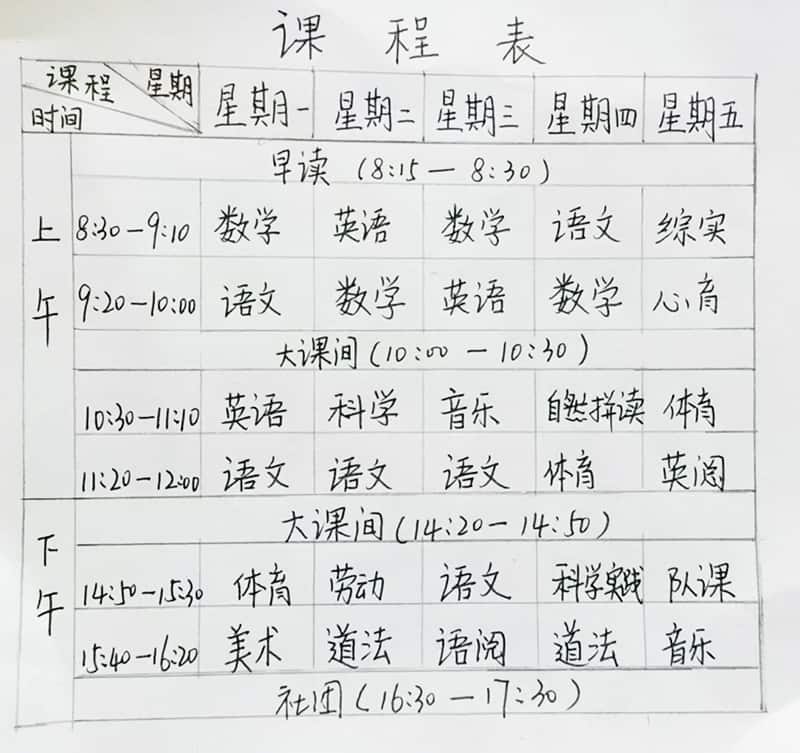 课 程 表
课程 星期
时间
星期一 星期二 星期三 星期四 星期五
上午
早读 (8:15 — 8:30)
8:30—9:10 数学 英语 数学 语文 综实
9:20—10:00 语文 数学 英语 数学 心育
大课间 (10:00 — 10:30)
10:30—11:10 英语 科学 音乐 自然拼读 体育
11:20—12:00 语文 语文 语文 体育 英阅
下午
大课间 (14:20—14:50)
14:50—15:30 体育 劳动 语文 科学实践 队课
15:40—16:20 美术 道法 语阅 道法 音乐
社团 (16:30 — 17:30)